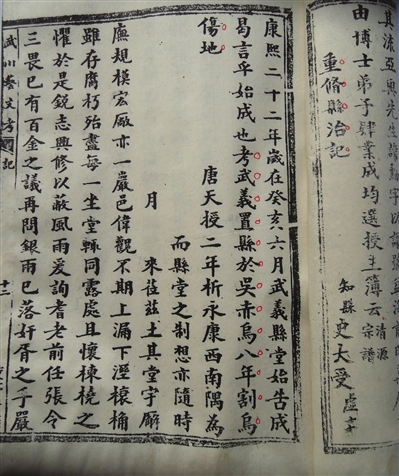 由博士弟子肄業成均選授主簿云
清源宗譜
重脩縣治記
知縣史大受
康熙二十二年歲在癸亥六月武義縣堂始告成
曷言乎始成也考武義置縣於吳赤烏八年割烏
傷地 唐天授二年析永康西南隅為
而縣堂之制想亦隨時
月 來莅茲土其堂宇廨
廡規模宏敞亦一巖邑偉觀不期上漏下溼榱桷
雖存腐朽殆盡每一坐堂輒同露處且懷棟橈之
懼於是銳志興修以蔽風雨爰詢耆老前任張令
三畏已有百金之議再問銀兩已落奸胥之手嚴
武川 文考 記